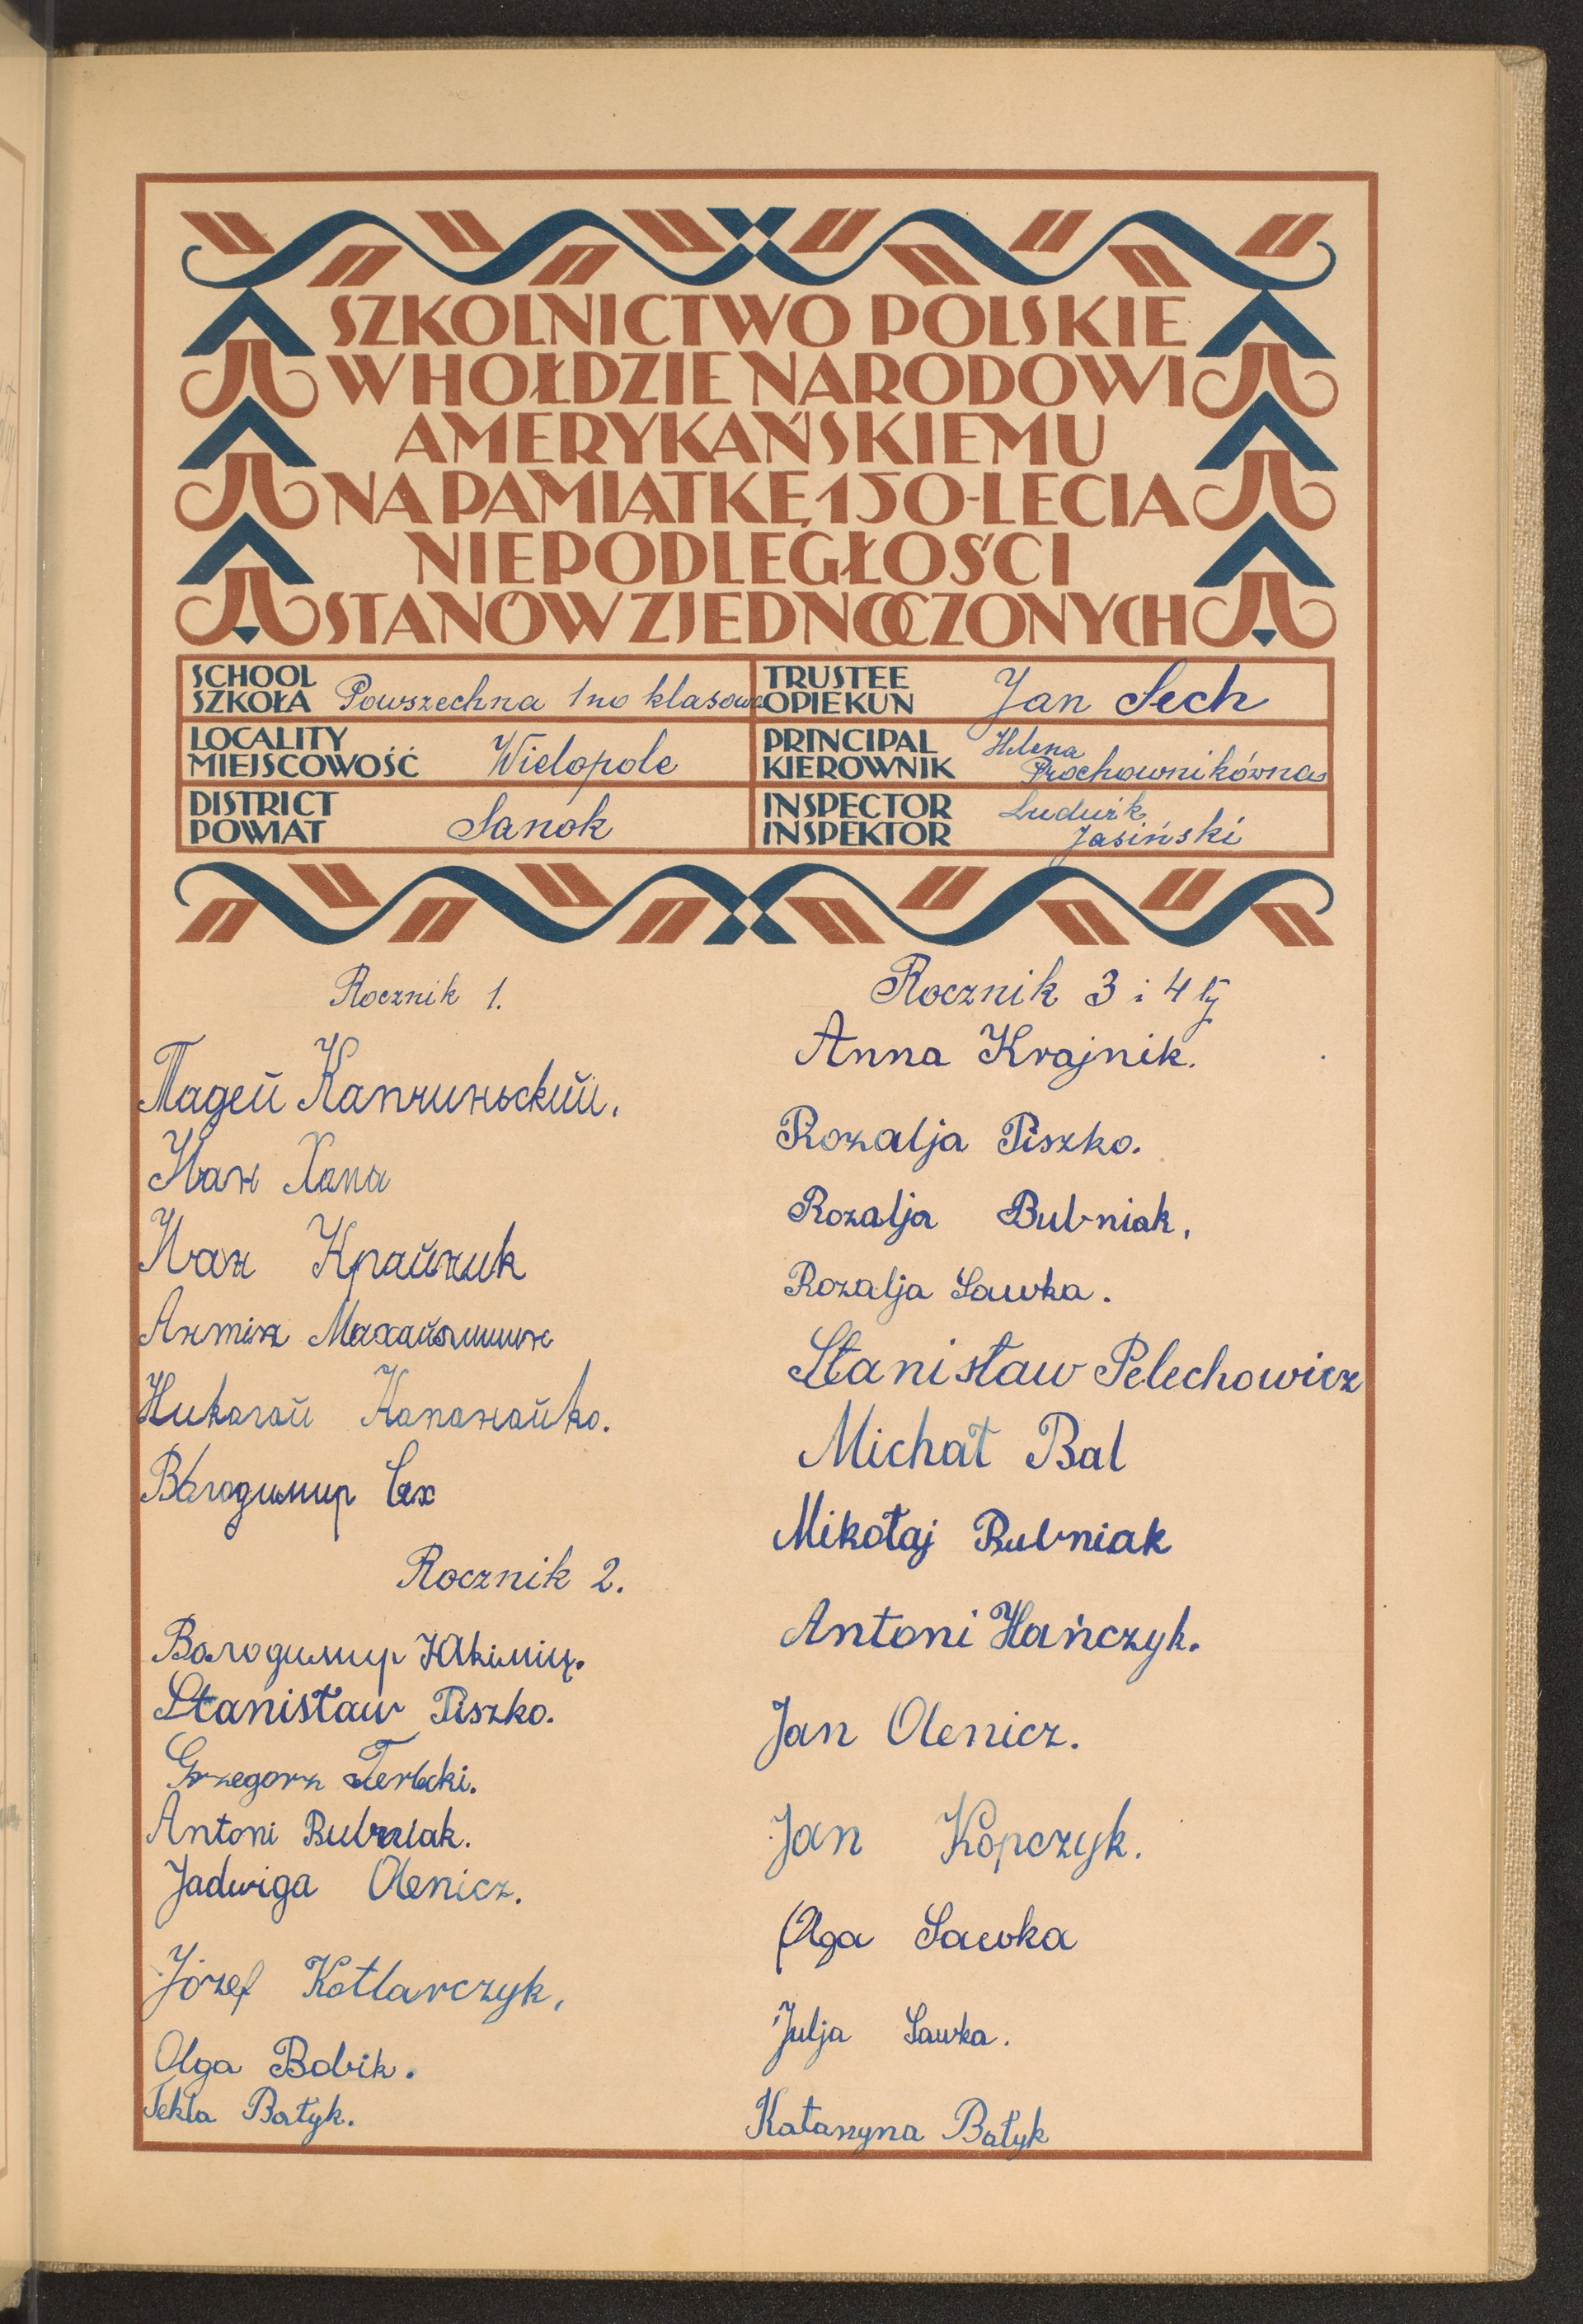 SZKOLNICTWO POLSKIE
W HOŁDZIE NARODOWI
AMERYKAŃSKIEMU
NA PAMIĄTKĘ 150-LECIA
NIEPODLEGŁOŚCI
STANÓW ZJEDNOCZONYCH
SCHOOL
SZKOŁA Powszechna 1no klasowa
TRUSTEE
OPIEKUN Jan Sech
LOCALITY
MIEJSCOWOŚĆ Wielopole
PRINCIPAL Helena
KIEROWNIK Prochownikówna
DISTRICT
POWIAT Sanok
INSPECTOR Ludwik
INSPEKTOR Jasiński
Rocznik 1.
Тадей Капчиньский.
Иван Хома
Иван Крайник
Николай
Володимир Сех
Rocznik 2.
Володимир Якимів.
Stanisław Piszko.
Grzegorz Terlecki.
Antoni Bubniak.
Jadwiga Olenicz.
Józef Kotlarczyk,
Olga Bobik.
Tekla Bałyk.
Rocznik 3 i 4 ty
Anna Krajnik.
Rozalja Piszko.
Rozalja Bubniak,
Rozalja Sawka.
Stanisław Pelechowicz
Michał Bal
Mikołaj Bubniak
Antoni Hańczyk.
Jan Olenicz.
Jan Kopczyk.
Olga Sawka
Julja Sawka.
Katarzyna Bałyk